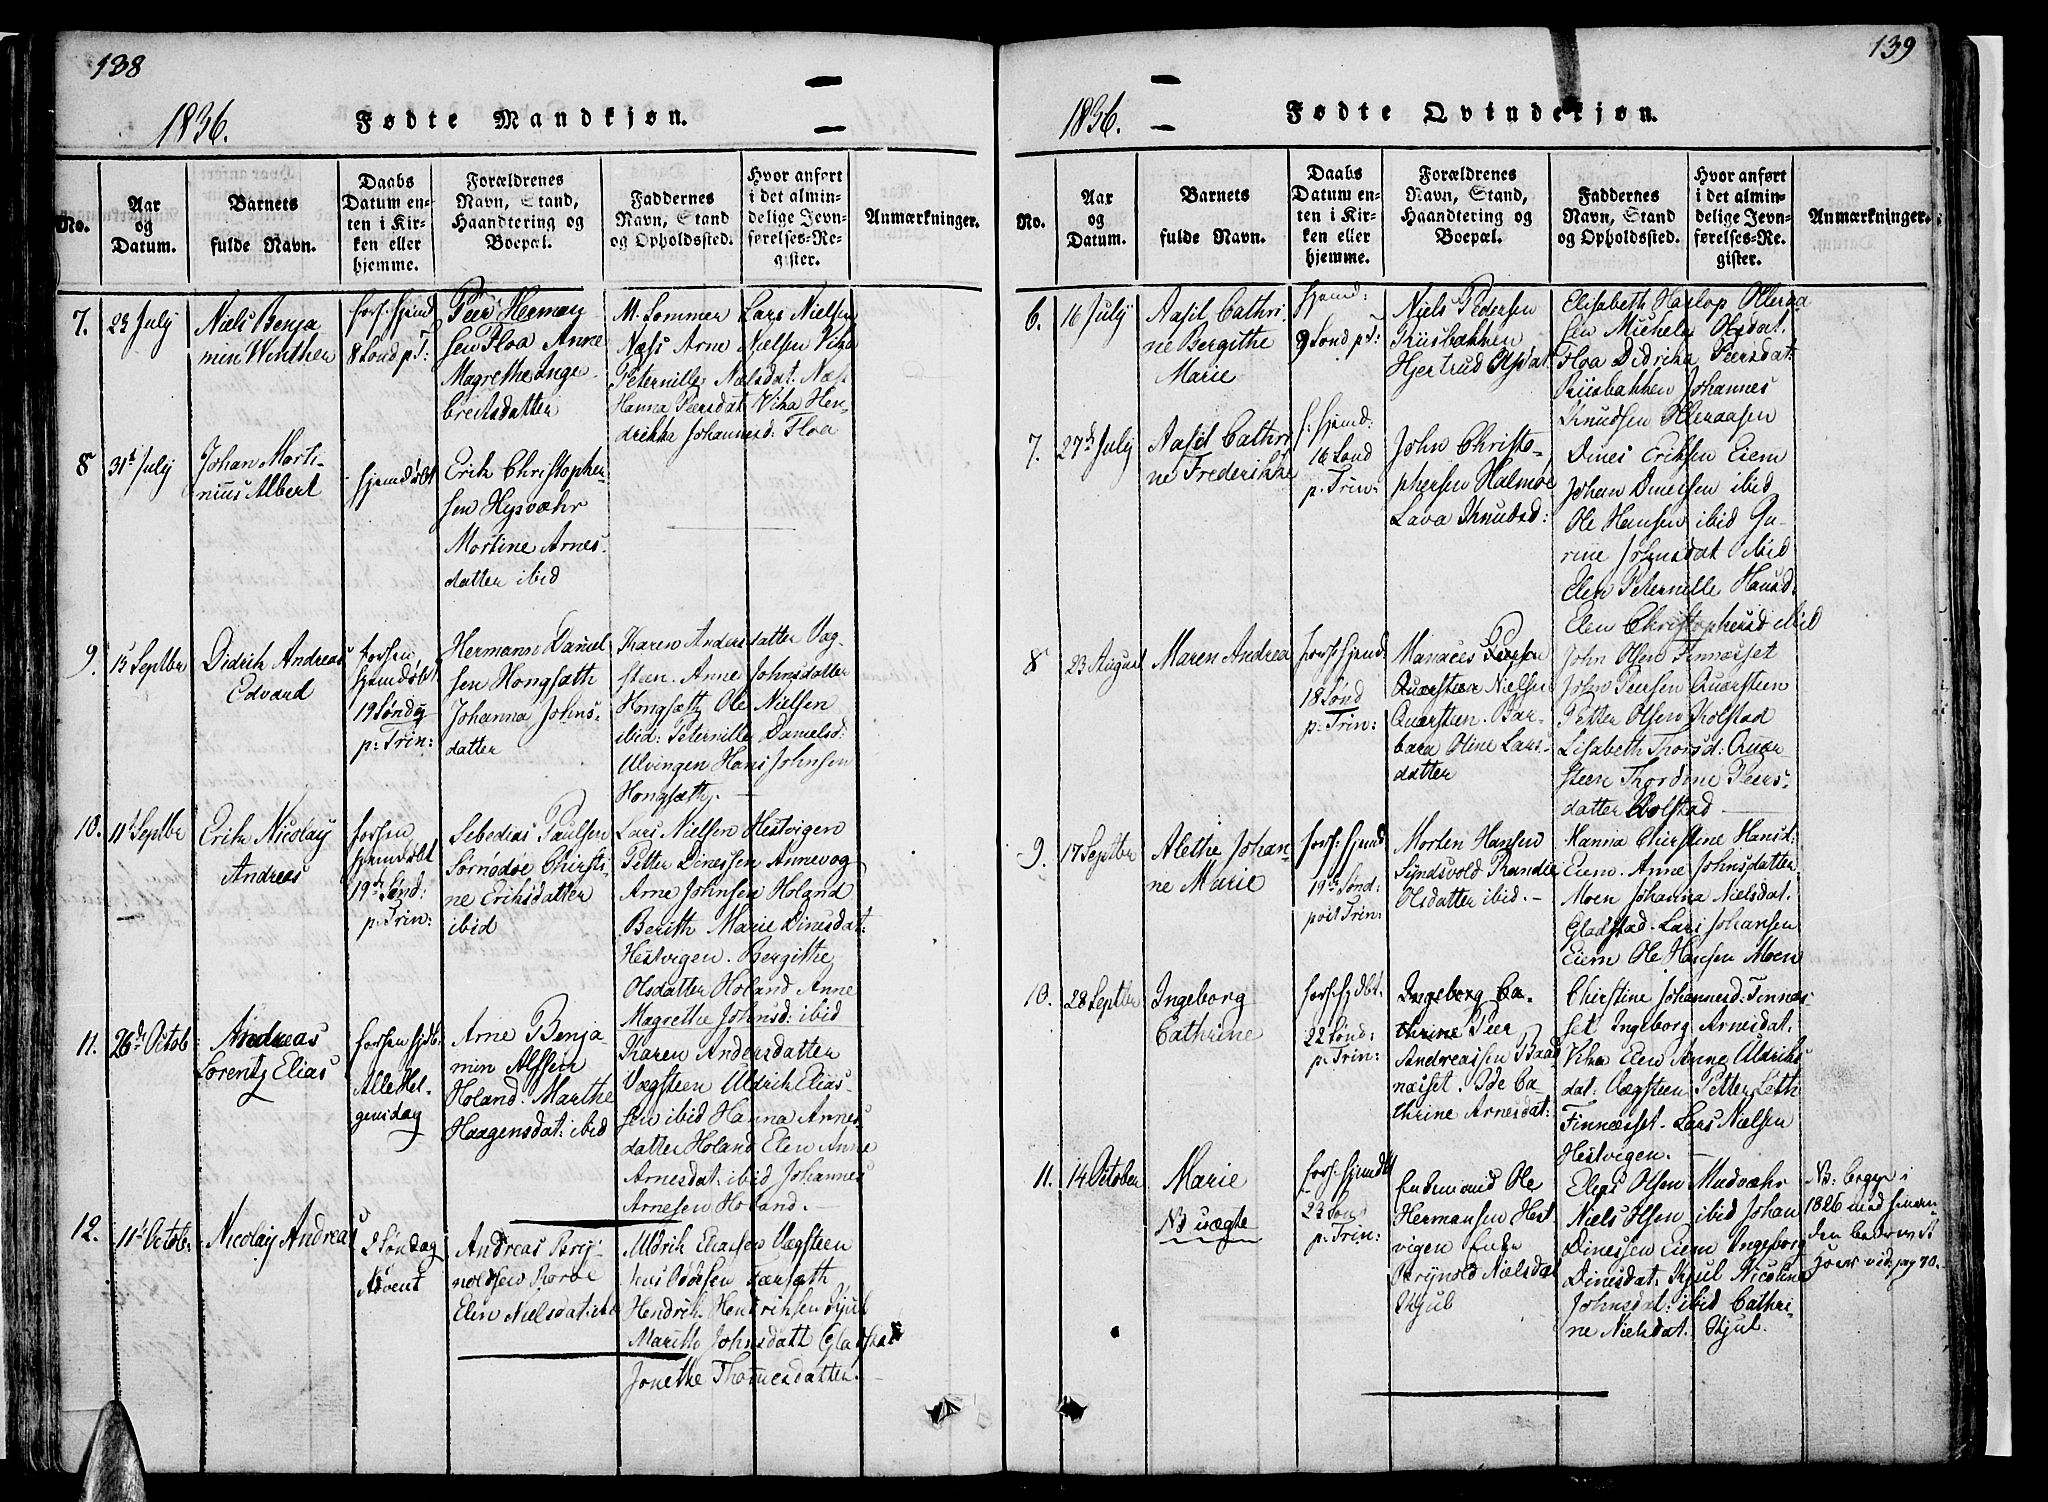 138
1836.
Fødte Mandkjøn.
No.
Aar
og
Datum.
Barnets
fulde Navn.
Daabs
Datum en-
ten i Kir-
ken eller
hjemme.
Forældrenes
Navn, Stand,
Haandtering og
Boepæl.
Faddernes
Navn, Stand
og Opholdssted.
Hvor anført
i det almin-
delige Jevn-
førelses-Re-
gister.
Anmærkninger.
7.
23 July
Niels Benja
min Winther
forh: hjemd
8 Sond p T:
Peer Heeman
sen Floa Anne
Magrethe Inge-
breitsdatter
M. Sommer Lars Nielsen
Næss Arne Nielsen Viha
Peternille Nielsdat: Næs
Hanna Peersdat Viha Hen-
drikka Johannesd: Floa
8
31t July
Johan Morti-
nius Albert
hjemdøbt
Erik Christopher-
sen Hysvæhr
Mortine Arnes-
datter ibid
9.
15 Septbr
Didrik Andreas
Edvard
forhen
hjemdøbt
19 Søndg
p: Trin:
Hermann Daniel
sen Hongsæth
Johanna Johns-
datter
Karen Andersdatter Vag-
steen. Anne Johnsdatter
Hongsæth Ole Nielsen
ibid: Peternille Danielsd:
Ulvingen Hans Johnsen
Hongsæth. —
10.
11t Septbr
Erik Nicolay
Andreas
forhen
hjemdøbt
19de Sønd:
p: Trin:
Sebedias Paulsen
Sørnødøe Chirsti-
ne Eriksdatter
ibid
Lars Nielsen Hestvigen
Petter Dinessen Annevog
Arne Johnsen Holand
Berith Marie Dinesdat:
Hestvigen. Bergithe
Olsdatter Holand Anne
Magrethe Johnsd: ibid
11.
26de Octob
Andreas
Lorentz Elias
forhen hjdb:
Alle Hel-
gensdag
Arne Benja-
min Alfsen
Holand. Marthe
Haagensdat: ibid
Karen Andersdatter
Vægsteen Uldrik Elias-
sen ibid Hanna Arnes
datter Holand Elen Anne
Arnesdat: ibid Johannes
Arnesen Holand. —
12.
11t Octob:
Nicolay Andreas
2 Søndag
Advent
Andreas Bry-
noldsen Rørøe
Elen Nielsdat: ibd
Uldrik Eliassen Vægsteen
Jens Oddesen Forsæth
Hendrik Hendriksen Kjul
Marith Johnsdath Gladstad
Jonethe Thomesdatter.
139
1836.
Fødte Qvindekjøn.
No.
Aar
og
Datum.
Barnets
fulde Navn.
Daabs
Datum en-
ten i Kir-
ken eller
hjemme.
Forældrenes
Navn, Stand,
Haandtering og
Boepæl.
Faddernes
Navn, Stand
og Opholdssted.
Hvor anført
i det almin-
delige Jevn-
førelses-Re-
gister.
Anmærkninger.
6.
16 July
Aasil Cathri-
ne Bergithe
Marie
hjemd:
9 Sond p T:
Niels Pedersen
Riisbakken
Hjertrud Olsdat
Elisabeth Haslop Olleraa-
sen Michela Olsdat.
Floa Didrika Peersdat:
Riisbakken Johannes
Knudsen Olleraasen
7.
27de July
Aasil Cathri
ne Frederikke
f. hjemd:
16 Sond
p. Trin:
John Christo-
phersen Halmøe
Lava Knudsd:
Dines Eriksen Eiem
Johan Dinessen ibid
Ole Hansen ibid Gu-
rine Johnsdat ibid
Elen Peternille Hansd:
Elen Christophersd ibid
8
23 August
Maren Andrea
forh: hjemd
18 Sønd
p: Trin:
Manaces Peersen
Quærsteen Nielsen
Quærsteen. Bar-
bara Oline Lars-
datter
John Olsen Finnæsset
John Peersen Quærsteen
Petter Olsen Kolstad
Lisabeth Thorsd: Quær
steen Thordine Peers-
datter Kolstad —
9.
17 Septbr
Alethe Johan-
ne Marie
forh: hjemd
19de Sønd-
post Trin:
Morten Hansen
Syndsvold Randie
Olsdatter ibid. —
Hanna Chirstine Hansd:
Eiem. Anne Johnsdatter
Moen Johanna Nielsdat.
Gladstad. Lars Johansen
Eiem Ole Hansen Moen
10.
28 Septbr
Ingeborg
Cathrine
forh: hjdbt.
22 Sønd:
p: Trin:
Ingeborg Ca-
thrine Peer
Andreassen Baad
næsset. Ide Ca-
thrine Arnesdat:
Chirstine Johannesd: Finnæs-
set Ingeborg Arnesdat.
Viha Elen Anne Uldriks
dat: Vægsteen Petter Leth
Finnæsset. Lars Nielsen
Hestvigen. —
11.
14 October
Marie
NB uægte
forh: hjemdbt
23 Sønd
p. Trin:
Enkemand Ole
Hermansen Hest
vigen Enke
Brynold Nielsdat
Skjul
Elias Olsen Mudvæhr
Niels Olsen ibid Johan
Dinessen Eiem Ingeborg
Dinesdat: Kjul Nicolina
Johnsdat: ibid Cathri-
ne Nielsdat. Skjul.
NB: begge i
1826 med hinan-
den bedrevet
hoer vid: pag 70.